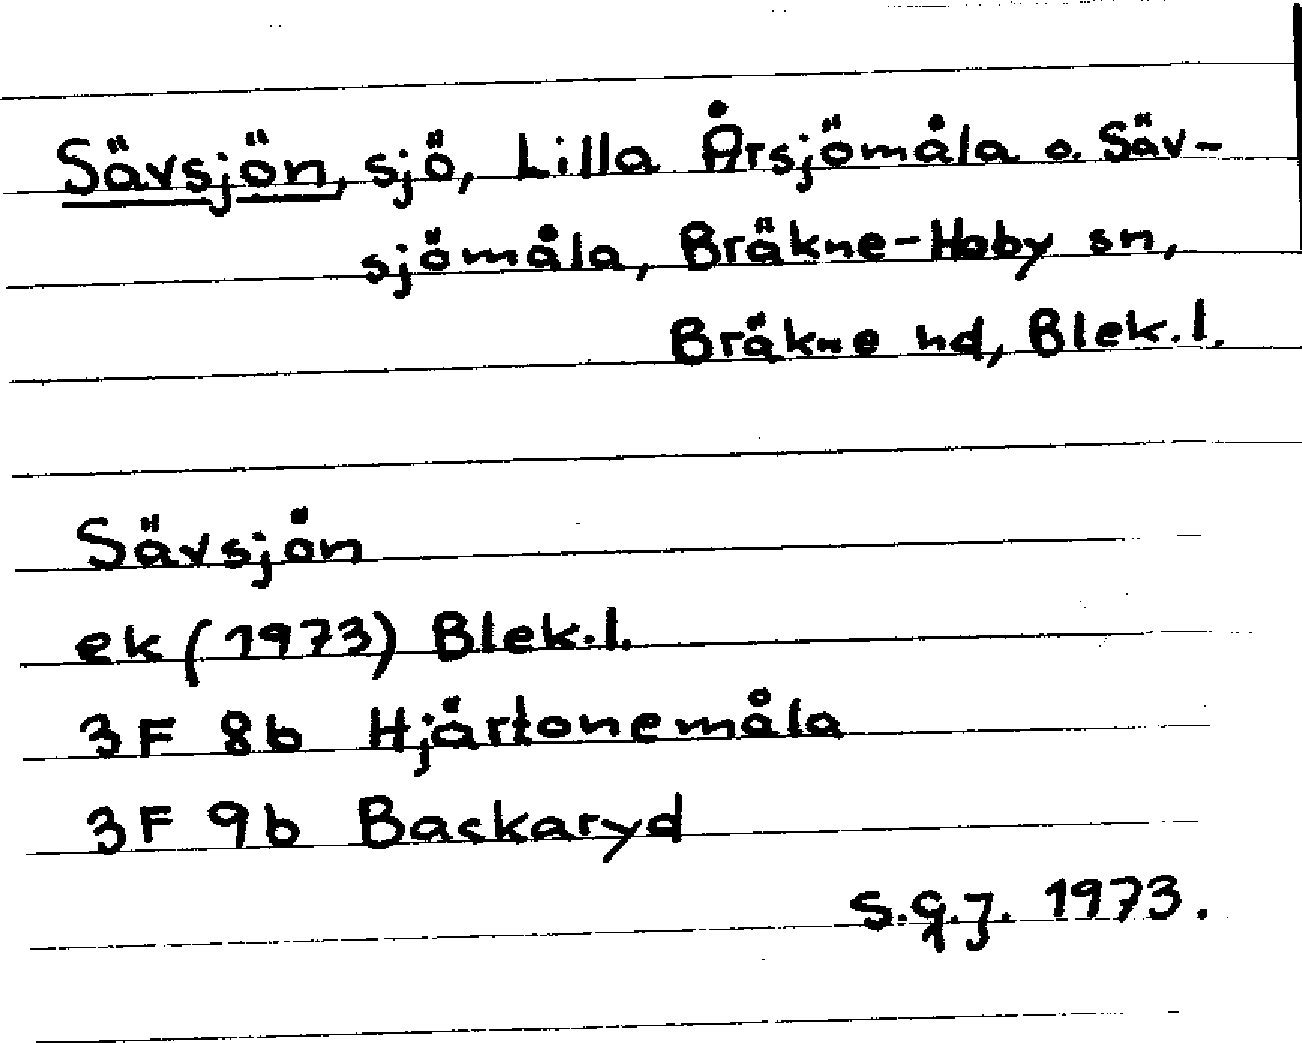 Sävsjön, sjö, Lilla Årsjömåla o. Säv-
sjömåla, Bräkne-Hoby sn,
Bräkne hd, Blek.l.
Sävsjön
ek (1973) Blek.l.
3F 8b Hjärtonemåla
3F 9b Backaryd
S.G.J. 1973.